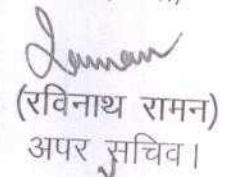 (रविनाथ रामन)
अपर सचिव।